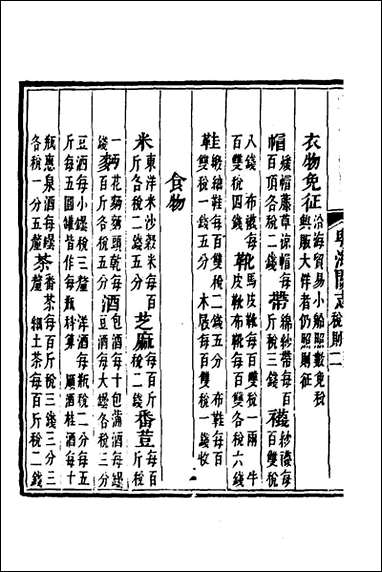 粵海關志 稅則二
衣物免征沿海貿易小船照數免稅
興販大洋者仍照則征
帽緞帽藤草涼帽每百頂各稅二錢帶綿紗帶每百斤稅三錢襪紗襪每百雙稅
八錢 布襪每百雙稅四錢靴馬皮靴每百雙稅一兩 牛皮靴布靴每百雙各六錢
鞋緞紬鞋每百雙稅二錢五分 布鞋每百雙稅一錢五分 木屐每百雙稅一錢收
食物
米東洋米沙榖米每百斤各稅二錢五分芝麻每百斤稅二錢番荳每百斤稅
一錢麪花麪麪頭乾每百斤各稅五分酒包酒每十包蒲酒每壜豆酒每大壜各稅三分
豆酒每小壜稅三釐 洋酒每瓶稅二分每五斤每五圓罐皆作每瓶科算 廟酒桂酒每十
瓶惠泉酒每壜各稅一分五釐茶番茶每百斤稅三錢三分三釐 細土茶每百斤稅二錢